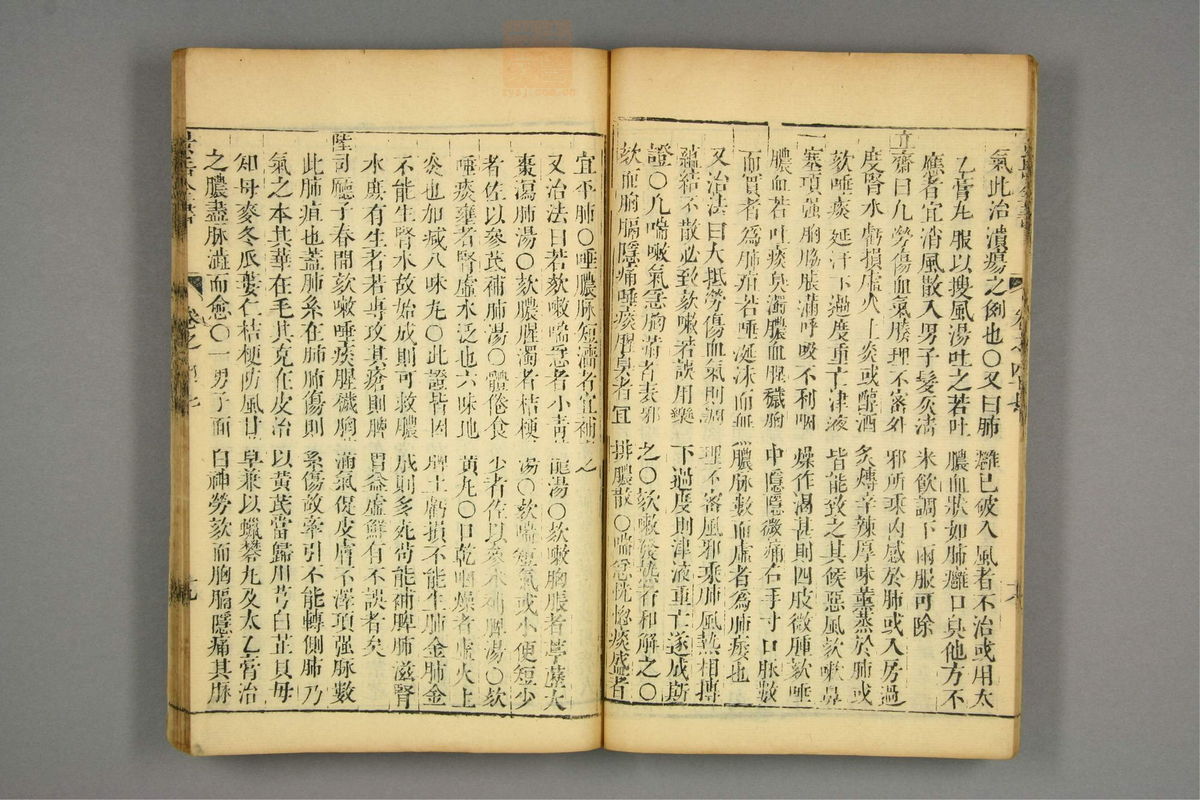 氣此治潰瘍之例也○又曰肺癰已破入風者不治或用太
乙膏丸服以搜風湯吐之若吐膿血狀如肺癰口臭他方不
應者宜消風散入男子髮灰清米飲調下兩服可除
立齋曰凡勞傷血氣腠理不密外邪所乘內感於肺或入房過
度腎水虧損虛火上炎或醇酒炙煿辛辣厚味薰蒸於肺或
欬唾痰延汗下過度重亡津液皆能致之其候惡風欬嗽鼻
塞項强胸脇脹滿呼吸不利咽燥作渴甚則四肢微腫欬唾
膿血若吐痰臭濁膿血腥穢胸中隱隱微痛右手寸口脉數
而實者爲肺疽若唾涎沫而無膿脉數而虛者爲肺痿也
又治法曰大抵勞傷血氣則腠理不密風邪乘肺風熱相搏
蘊結不散必致欬嗽若誤用藥下過度則津液重亡遂成斯
證○凡喘嗽氣急胸滿者表邪之○欬嗽發熱者和解之○
欬血胸膈隱痛唾痰腥臭者宜排膿散○喘急恍惚痰盛者
宜平肺○唾膿脉短濇者宜補之
又治法曰若欬嗽喘急者小青龍湯○欬嗽胸脹者葶藶大
棗瀉肺湯○欬膿腥濁者桔梗湯○欬喘短氣或小便短少
者佐以參芪補肺湯○體倦食少者佐以參朮補脾湯○欬
唾痰壅者腎虛水泛也六味地黃丸○口乾咽燥者虛火上
炎也加減八味丸○此證皆因脾土虧損不能生肺金肺金
不能生腎水故始成則可救膿成則多死苟能補脾肺滋腎
水庶有生者若專攻其瘡則脾胃益虛鮮有不誤者矣
陸司廳子春間欬嗽唾痰腥穢胸滿氣促皮膚不澤項强脉數
此肺疽也蓋肺系在肺肺傷則系傷故牽引不能轉側肺乃
氣之本其華在毛其充在皮治以黃芪當歸川芎白芷貝毋
知母麥冬瓜蔞仁桔梗防風甘草兼以蠟礬丸及太乙膏治
之膿盡脉澁而愈○一男子面白神勞欬而胸膈隱痛其脉